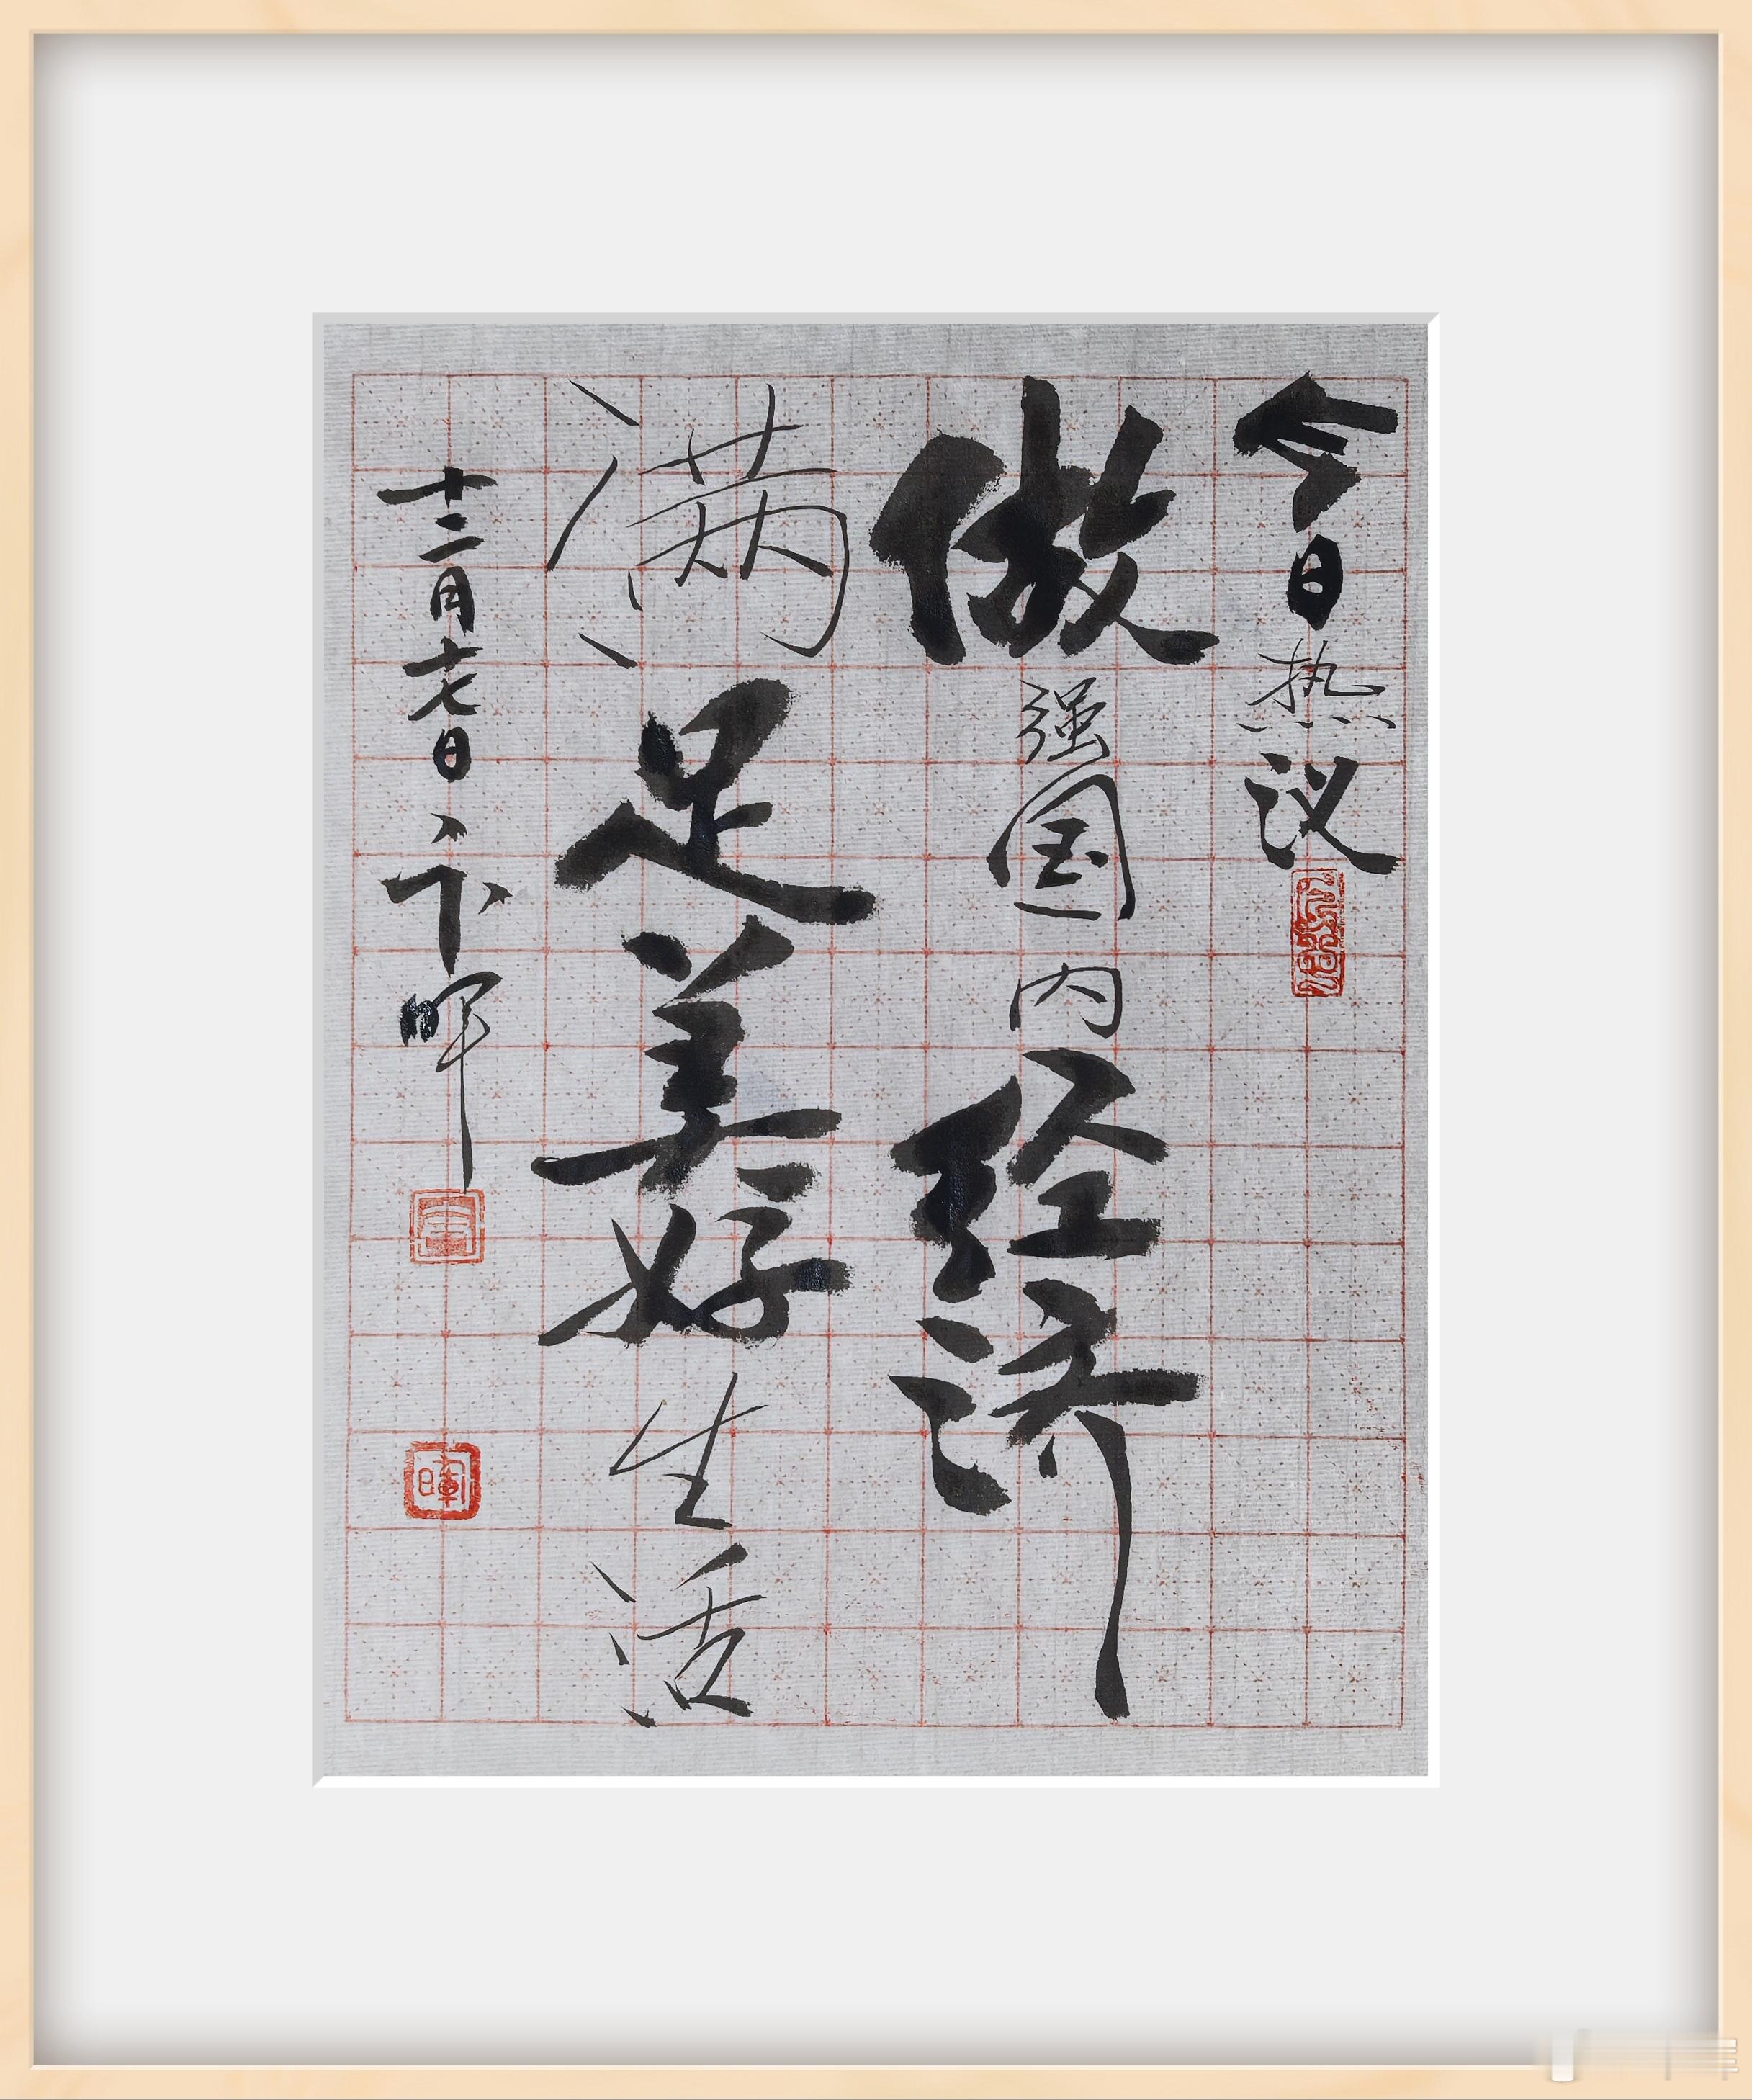 今日热议
做强国内经济
满足美好生活
十二月十七日 卞晖
暉